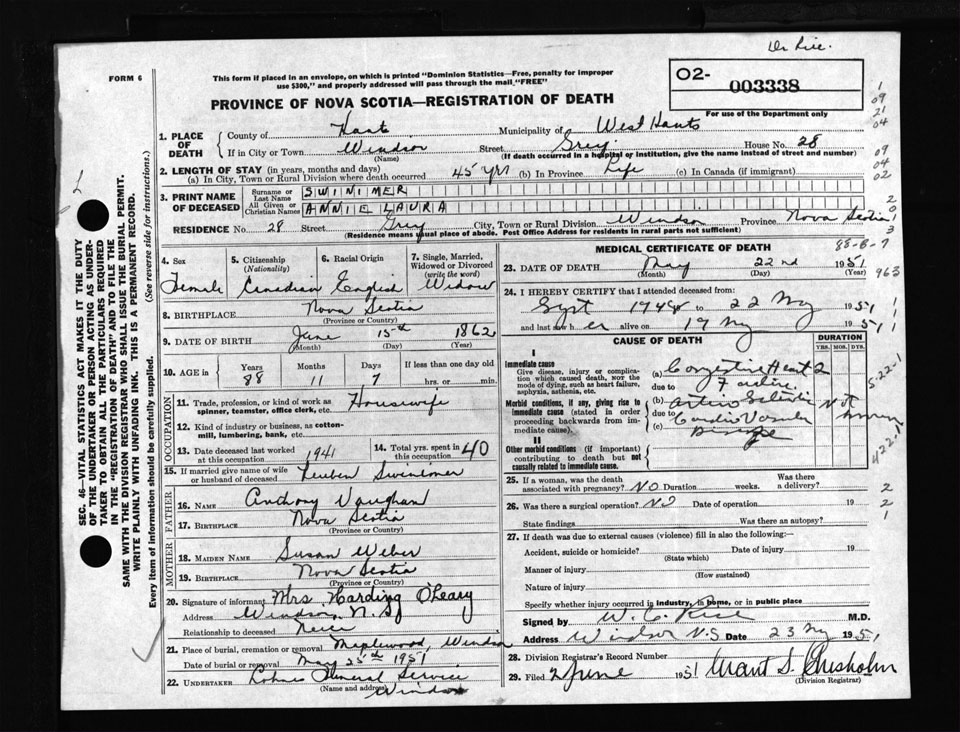 Dr Rice.
FORM 6
This form if placed in an envelope, on which is printed "Dominion Statistics—Free, penalty for improper
use $300," and properly addressed will pass through the mail "FREE"
PROVINCE OF NOVA SCOTIA—REGISTRATION OF DEATH
O2- 003338
For use of the Department only
1. PLACE OF DEATH
County of Hants Municipality of West Hants
If in City or Town Windsor Street Grey House No. 28
(Name) (If death occurred in a hospital or institution, give the name instead of street and number)
2. LENGTH OF STAY (in years, months and days)
(a) In City, Town or Rural Division where death occurred 45 yrs (b) In Province Life (c) In Canada (if immigrant)
3. PRINT NAME OF DECEASED
Surname or Last Name SWINIMER
All Given or Christian Names ANNIE LAURA
RESIDENCE No. 28 Street Grey City, Town or Rural Division Windsor Province Nova Scotia
(Residence means usual place of abode. Post Office Address for residents in rural parts not sufficient)
4. Sex Female
5. Citizenship (Nationality) Canadian
6. Racial Origin English
7. Single, Married, Widowed or Divorced (write the word) Widow
8. BIRTHPLACE Nova Scotia
(Province or Country)
9. DATE OF BIRTH June 15th 1862
(Month) (Day) (Year)
10. AGE in Years 88 Months 11 Days 7 If less than one day old hrs. or min.
OCCUPATION
11. Trade, profession, or kind of work as spinner, teamster, office clerk, etc. Housewife
12. Kind of industry or business, as cotton-mill, lumbering, bank, etc.
13. Date deceased last worked at this occupation 1941
14. Total yrs. spent in this occupation 40
15. If married give name of wife or husband of deceased Reuben
FATHER
16. NAME Anthony Vaughan
17. BIRTHPLACE Nova Scotia
(Province or Country)
MOTHER
18. MAIDEN NAME Susan Weber
19. BIRTHPLACE Nova Scotia
(Province or Country)
20. Signature of informant Mrs Harding O'Leary
Address Windsor, N.S.
Relationship to deceased Neice
21. Place of burial, cremation or removal Maplewood, Windsor
Date of burial or removal May 25th 1951
22. UNDERTAKER Funeral Service
(Name and address) Windsor
MEDICAL CERTIFICATE OF DEATH
23. DATE OF DEATH May 22nd 1951
(Month) (Day) (Year)
24. I HEREBY CERTIFY that I attended deceased from:
Sept 1948 to 22 My 1951
and last saw her alive on 19 My 1951
CAUSE OF DEATH
DURATION
YRS. MOS. DYS.
I
Immediate cause
Give disease, injury or complication which caused death, not the mode of dying, such as heart failure, asphyxia, asthenia, etc.
(a) Congestive Heart Failure 2
due to
Morbid conditions, if any, giving rise to immediate cause (stated in order proceeding backwards from immediate cause).
(b) Arterio Sclerotic Not known
due to
(c) Cardio Vascular Disease
II
Other morbid conditions (if important) contributing to death but not causally related to immediate cause.
25. If a woman, was the death associated with pregnancy? NO Duration weeks. Was there a delivery?
26. Was there a surgical operation? NO Date of operation 19
State findings Was there an autopsy?
27. If death was due to external causes (violence) fill in also the following:—
Accident, suicide or homicide? Date of injury 19
(State which)
Manner of injury
(How sustained)
Nature of injury
Specify whether injury occurred in industry, in home, or in public place
Signed by W. C. Rice M.D.
Address Windsor N.S Date 23 My 1951
28. Division Registrar's Record Number
29. Filed 2 June 1951 Grant S. Chisholm
(Division Registrar)
SEC. 46—VITAL STATISTICS ACT MAKES IT THE DUTY
OF THE UNDERTAKER OR PERSON ACTING AS UNDER-
TAKER TO OBTAIN ALL THE PARTICULARS REQUIRED
IN THE "REGISTRATION OF DEATH" AND TO FILE THE
SAME WITH THE DIVISION REGISTRAR WHO SHALL ISSUE THE BURIAL PERMIT.
WRITE PLAINLY WITH UNFADING INK. THIS IS A PERMANENT RECORD.
Every item of information should be carefully supplied. (See reverse side for instructions.)
1
09
21
04
09
04
02
2
0
1
3
88-8-7
963
1
5-22-1
422-1
2
2
1